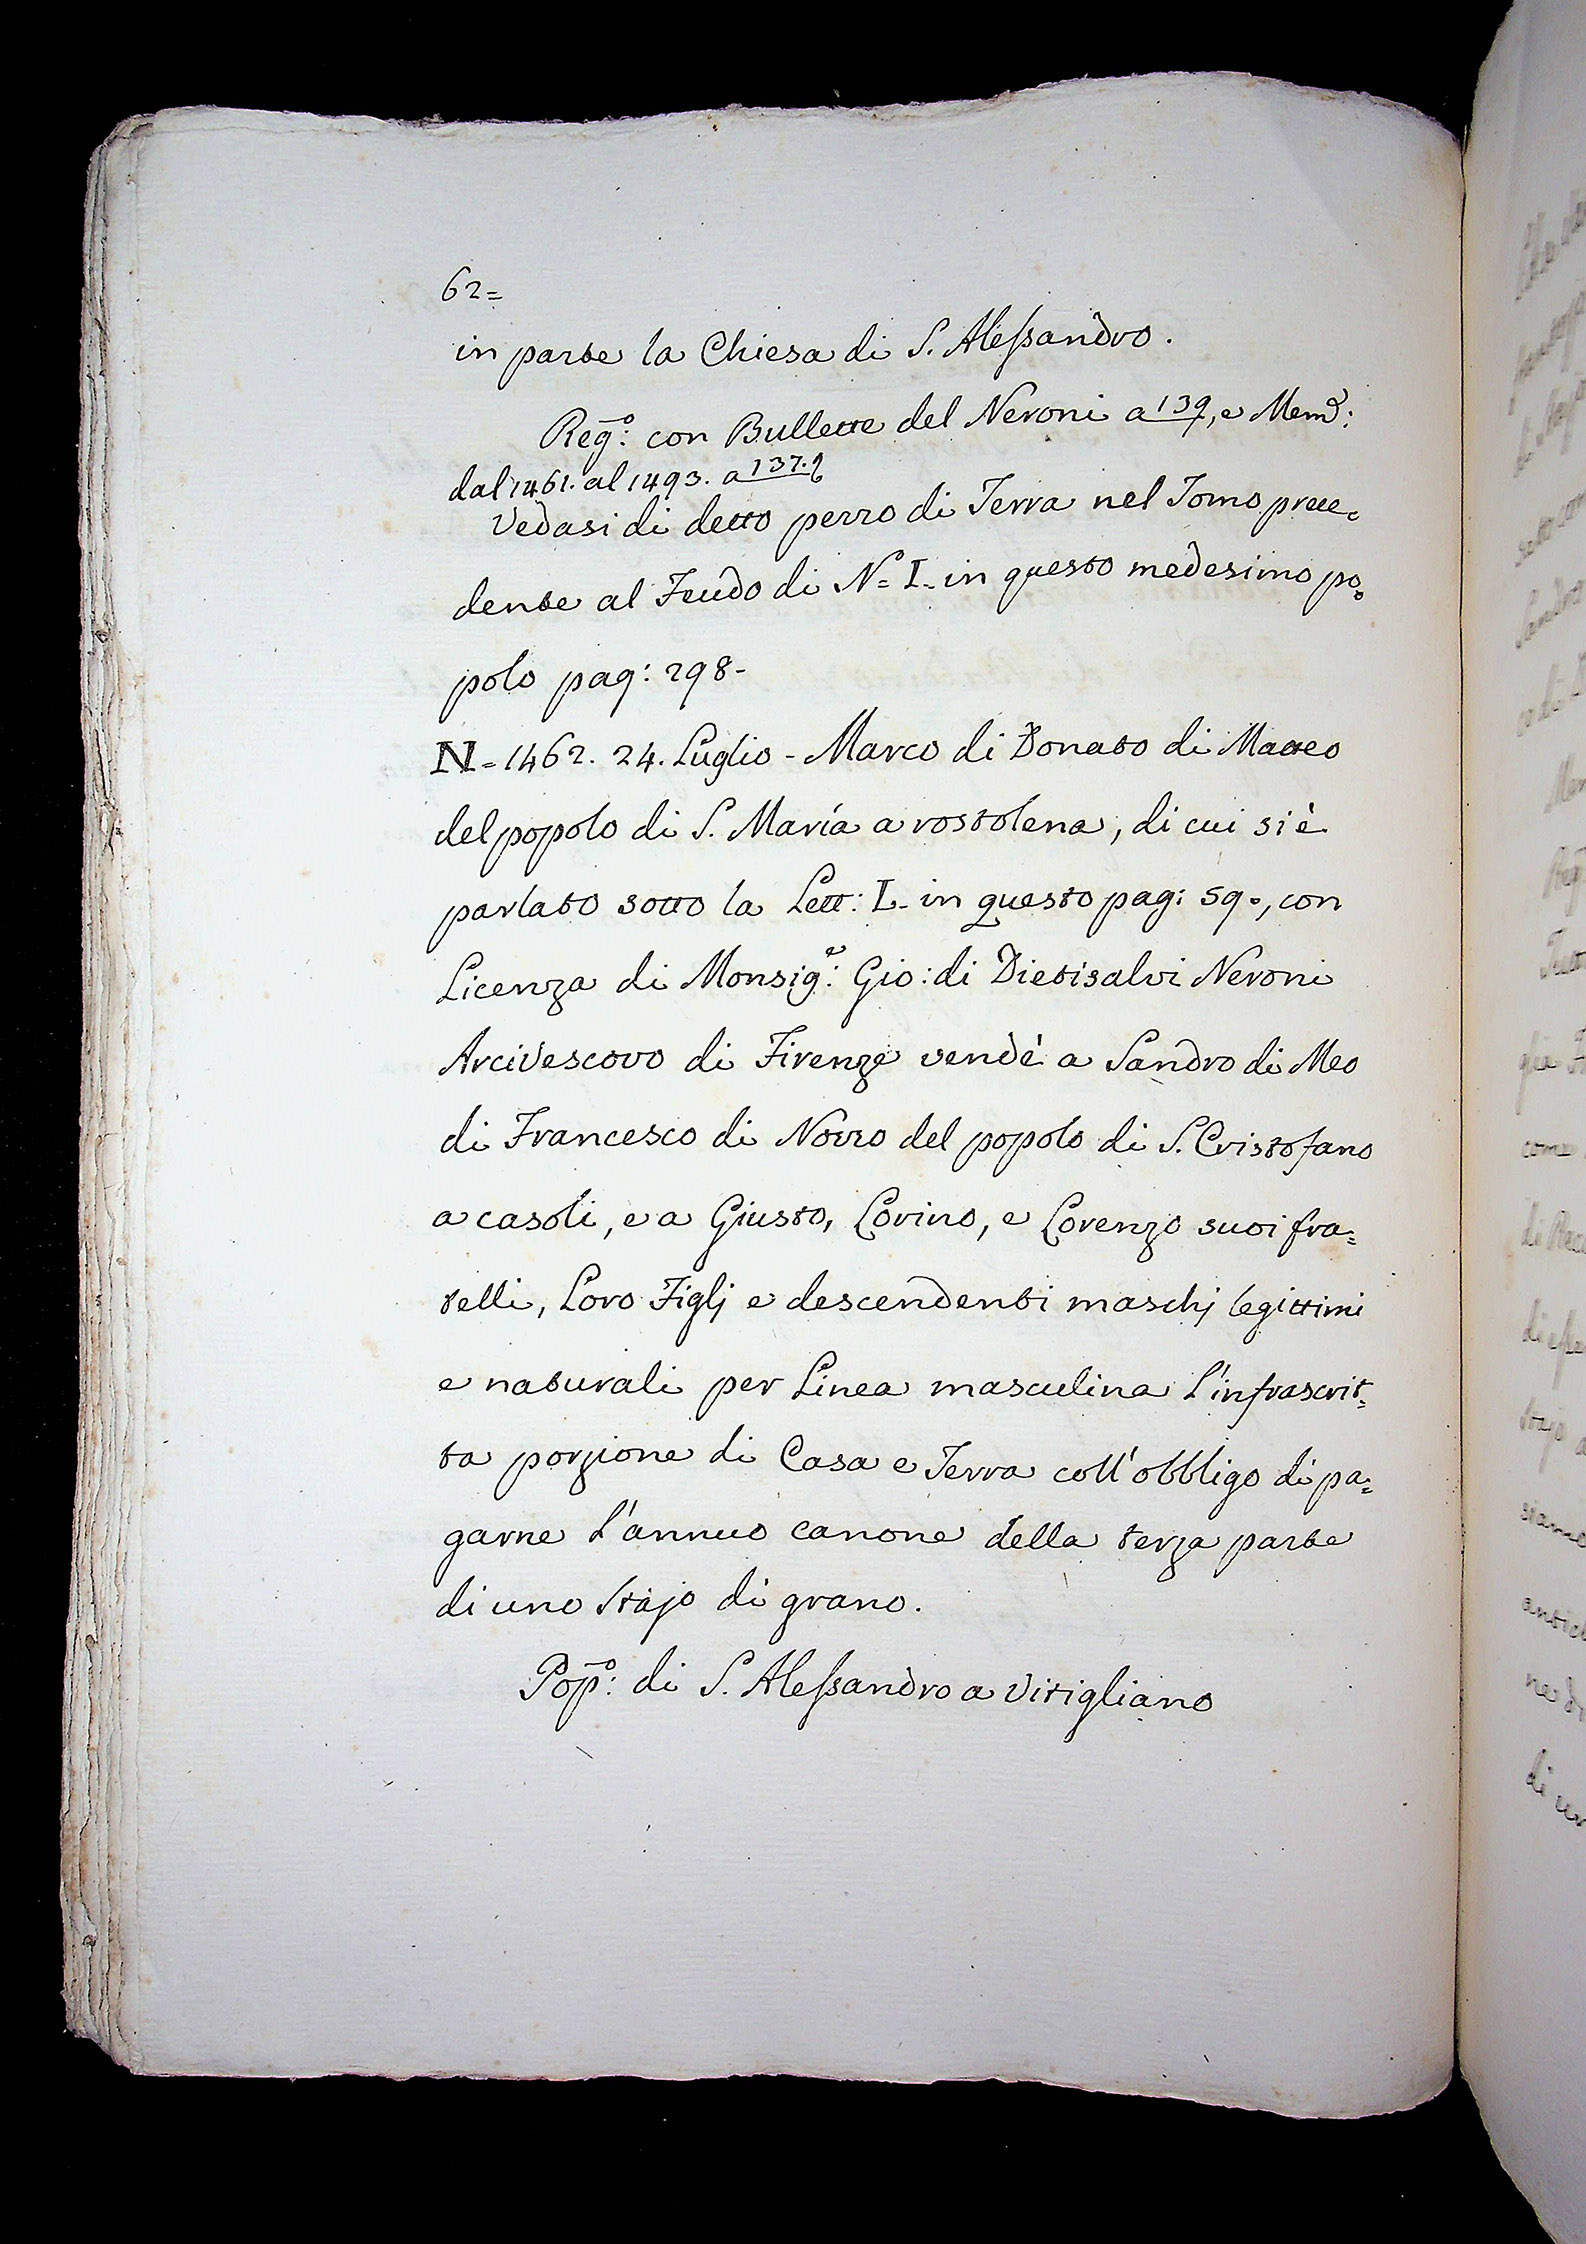 62=
in parte la Chiesa di S. Alessandro.
Reg.º: con Bullette del Neroni a 139, e Mem.e:
dal 1461. al 1493. a 137.
Vedasi di detto pezzo di Terra nel Tomo prece=
dente al Feudo di N= I- in questo medesimo po=
polo pag: 298-
N- 1462. 24. Luglio - Marco di Donato di Matteo
del popolo di S. María a rostolena, di cui si è
parlato sotto la Lett: L- in questo pag: 59., con
Licenza di Monsig.e: Gio: di Dietisalvi Neroni
Arcivescovo di Firenze vendè a Sandro di Meo
di Francesco di Nozzo del popolo di S. Cristofano
a casoli, e a Giusto, Lorino, e Lorenzo suoi fra=
telli, Loro Figlj e descendenti maschj legittimi
e naturali per Linea masculina l'infrascrit=
ta porzione di Casa e Terra coll'obbligo di pa=
garne l'annuo canone della terza parte
di uno Stajo di grano.
Pop.º: di S. Alessandro a Vitigliano